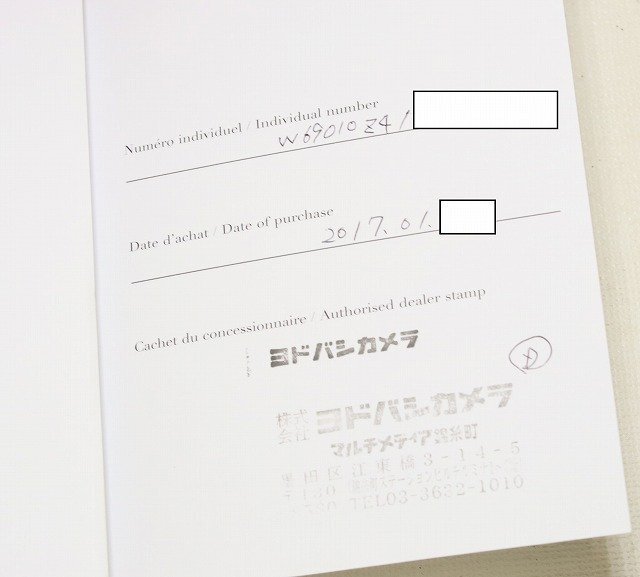 Numéro individuel / Individual number
W69010Z4 /
Date d'achat / Date of purchase
2017. 01.
Cachet du concessionnaire / Authorised dealer stamp
ヨドバシカメラ
株式会社 ヨドバシカメラ
マルチメディア錦糸町
墨田区江東橋3-14-5
〒130
TEL03-3632-1010